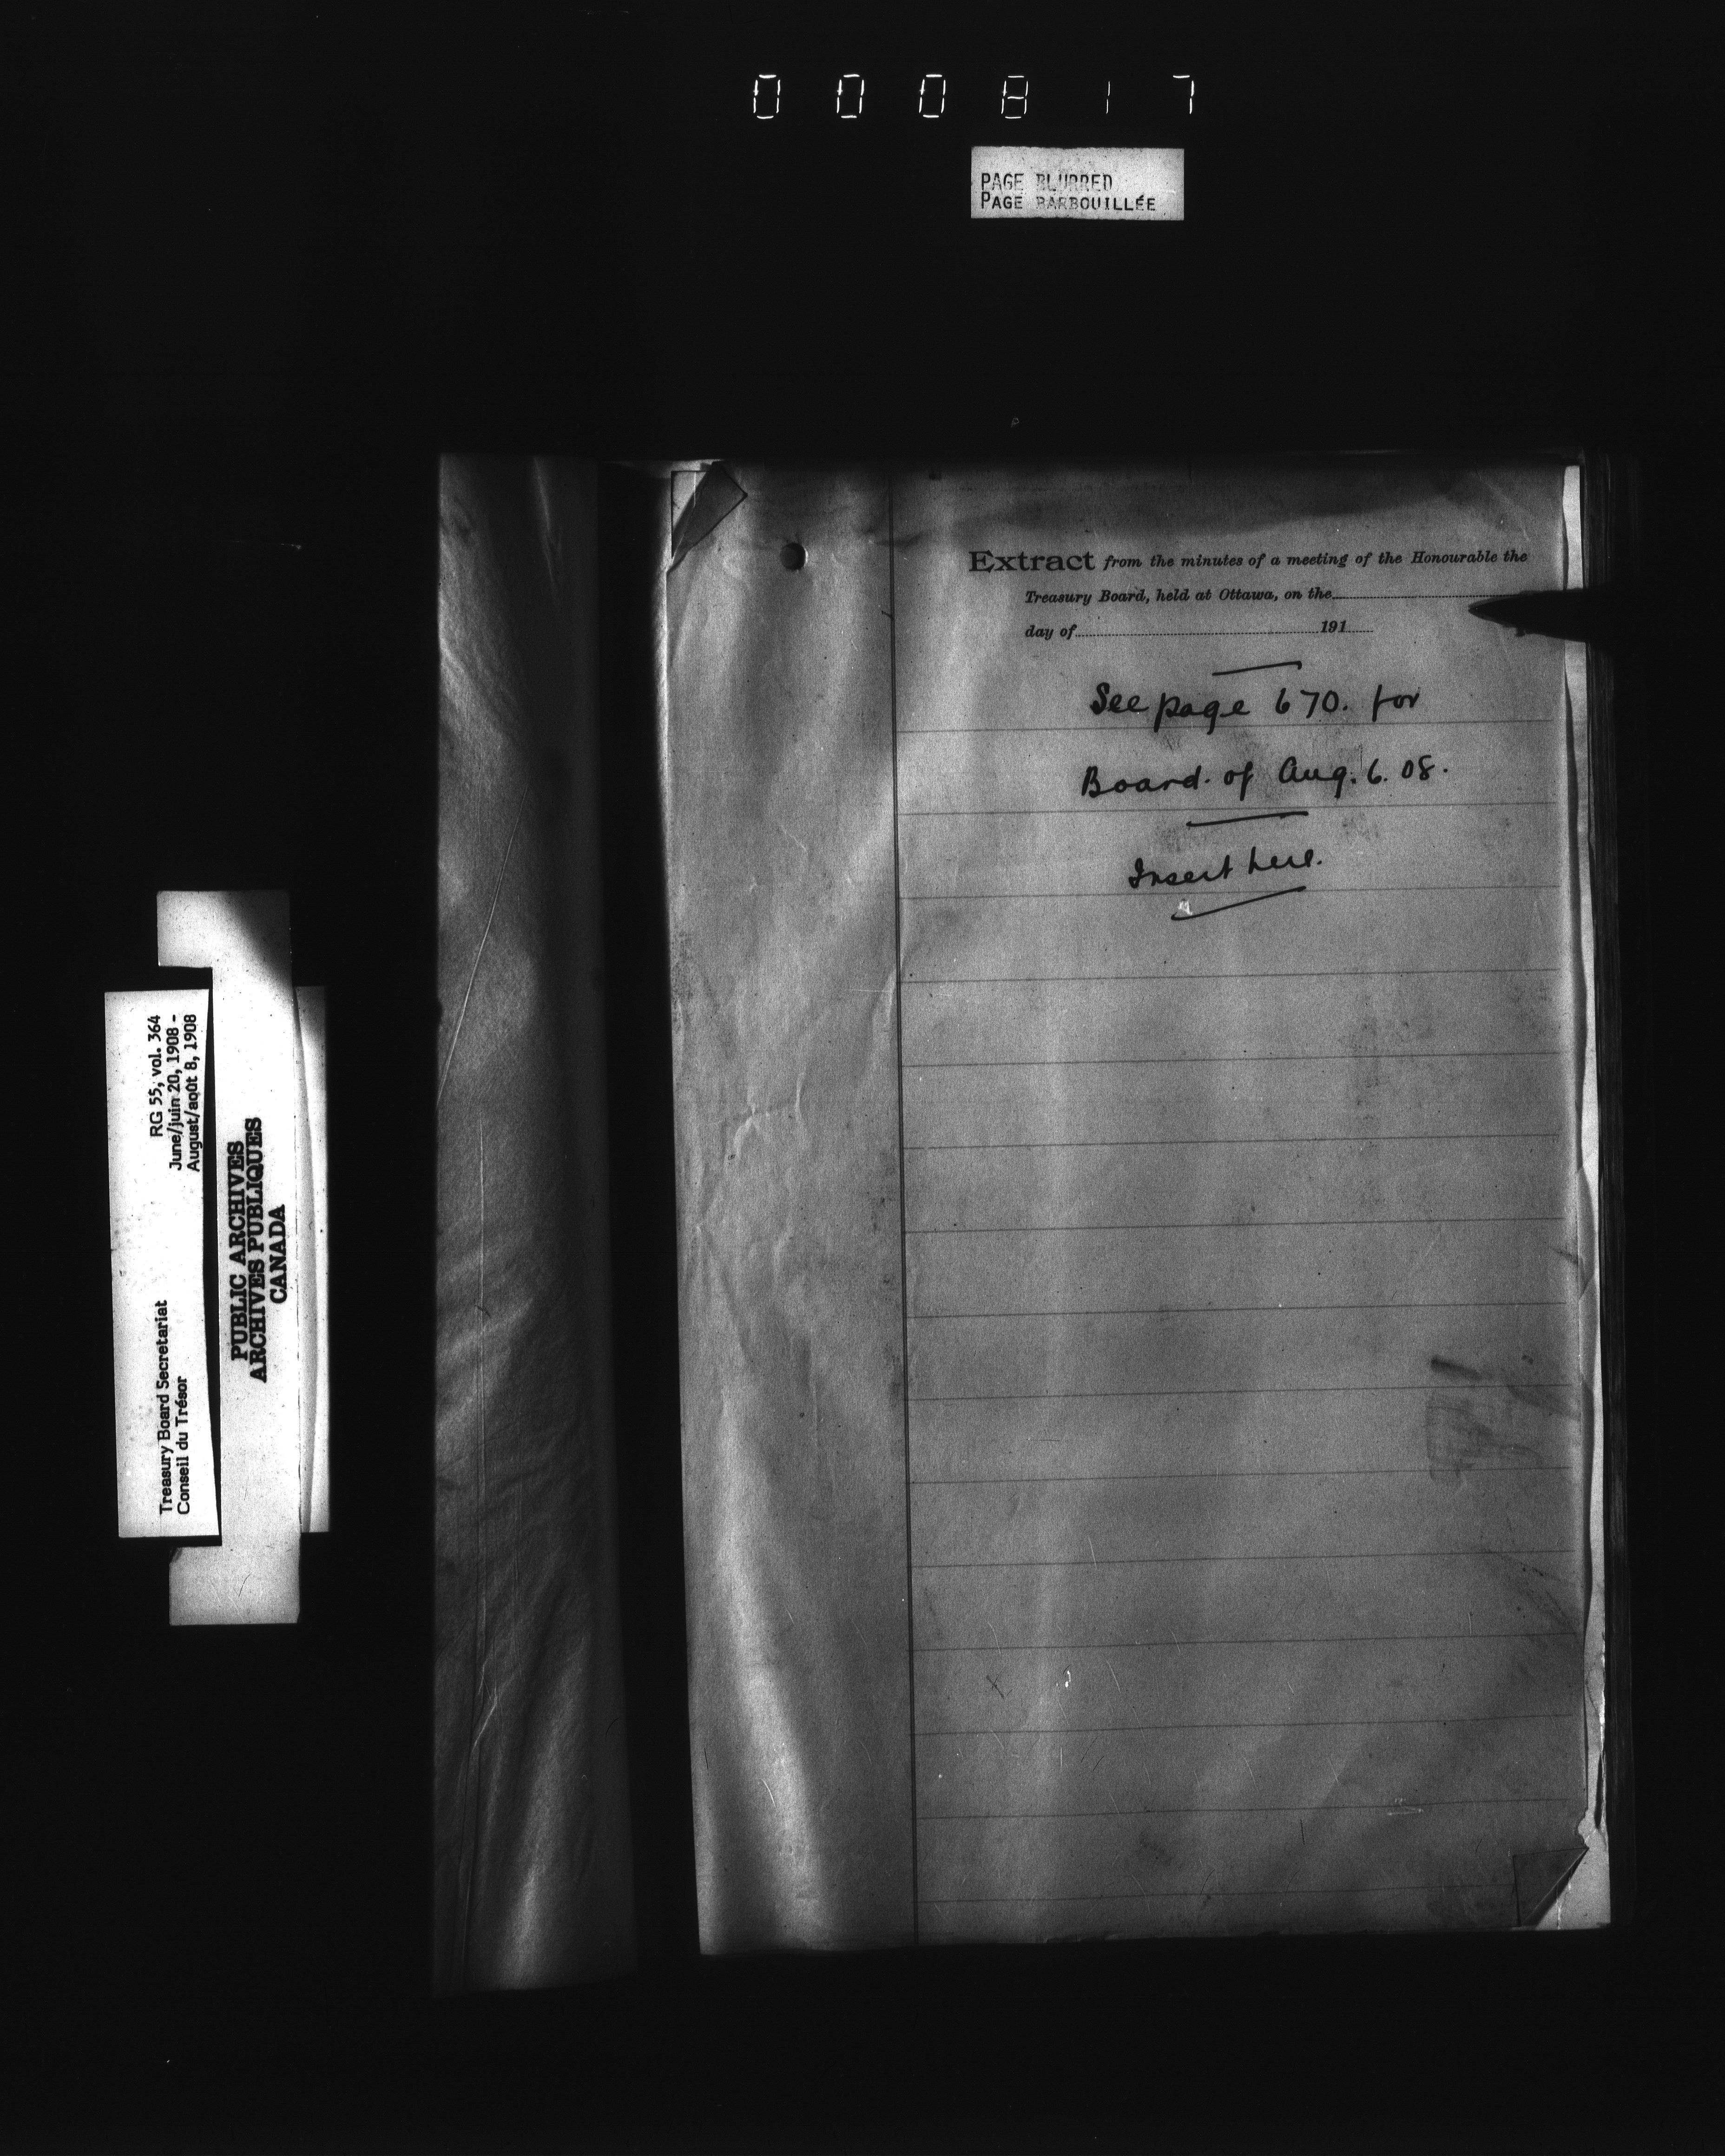 000817
PAGE BLURRED
PAGE BARBOUILLÉE
Extract from the minutes of a meeting of the Honourable the
Treasury Board, held at Ottawa, on the
day of 191
See page 670. for
Board. of Aug. 6. 08.
Insert here.
RG 55, vol. 364
June/juin 20, 1908 -
August/août 8, 1908
Treasury Board Secretariat
Conseil du Trésor
PUBLIC ARCHIVES
ARCHIVES PUBLIQUES
CANADA